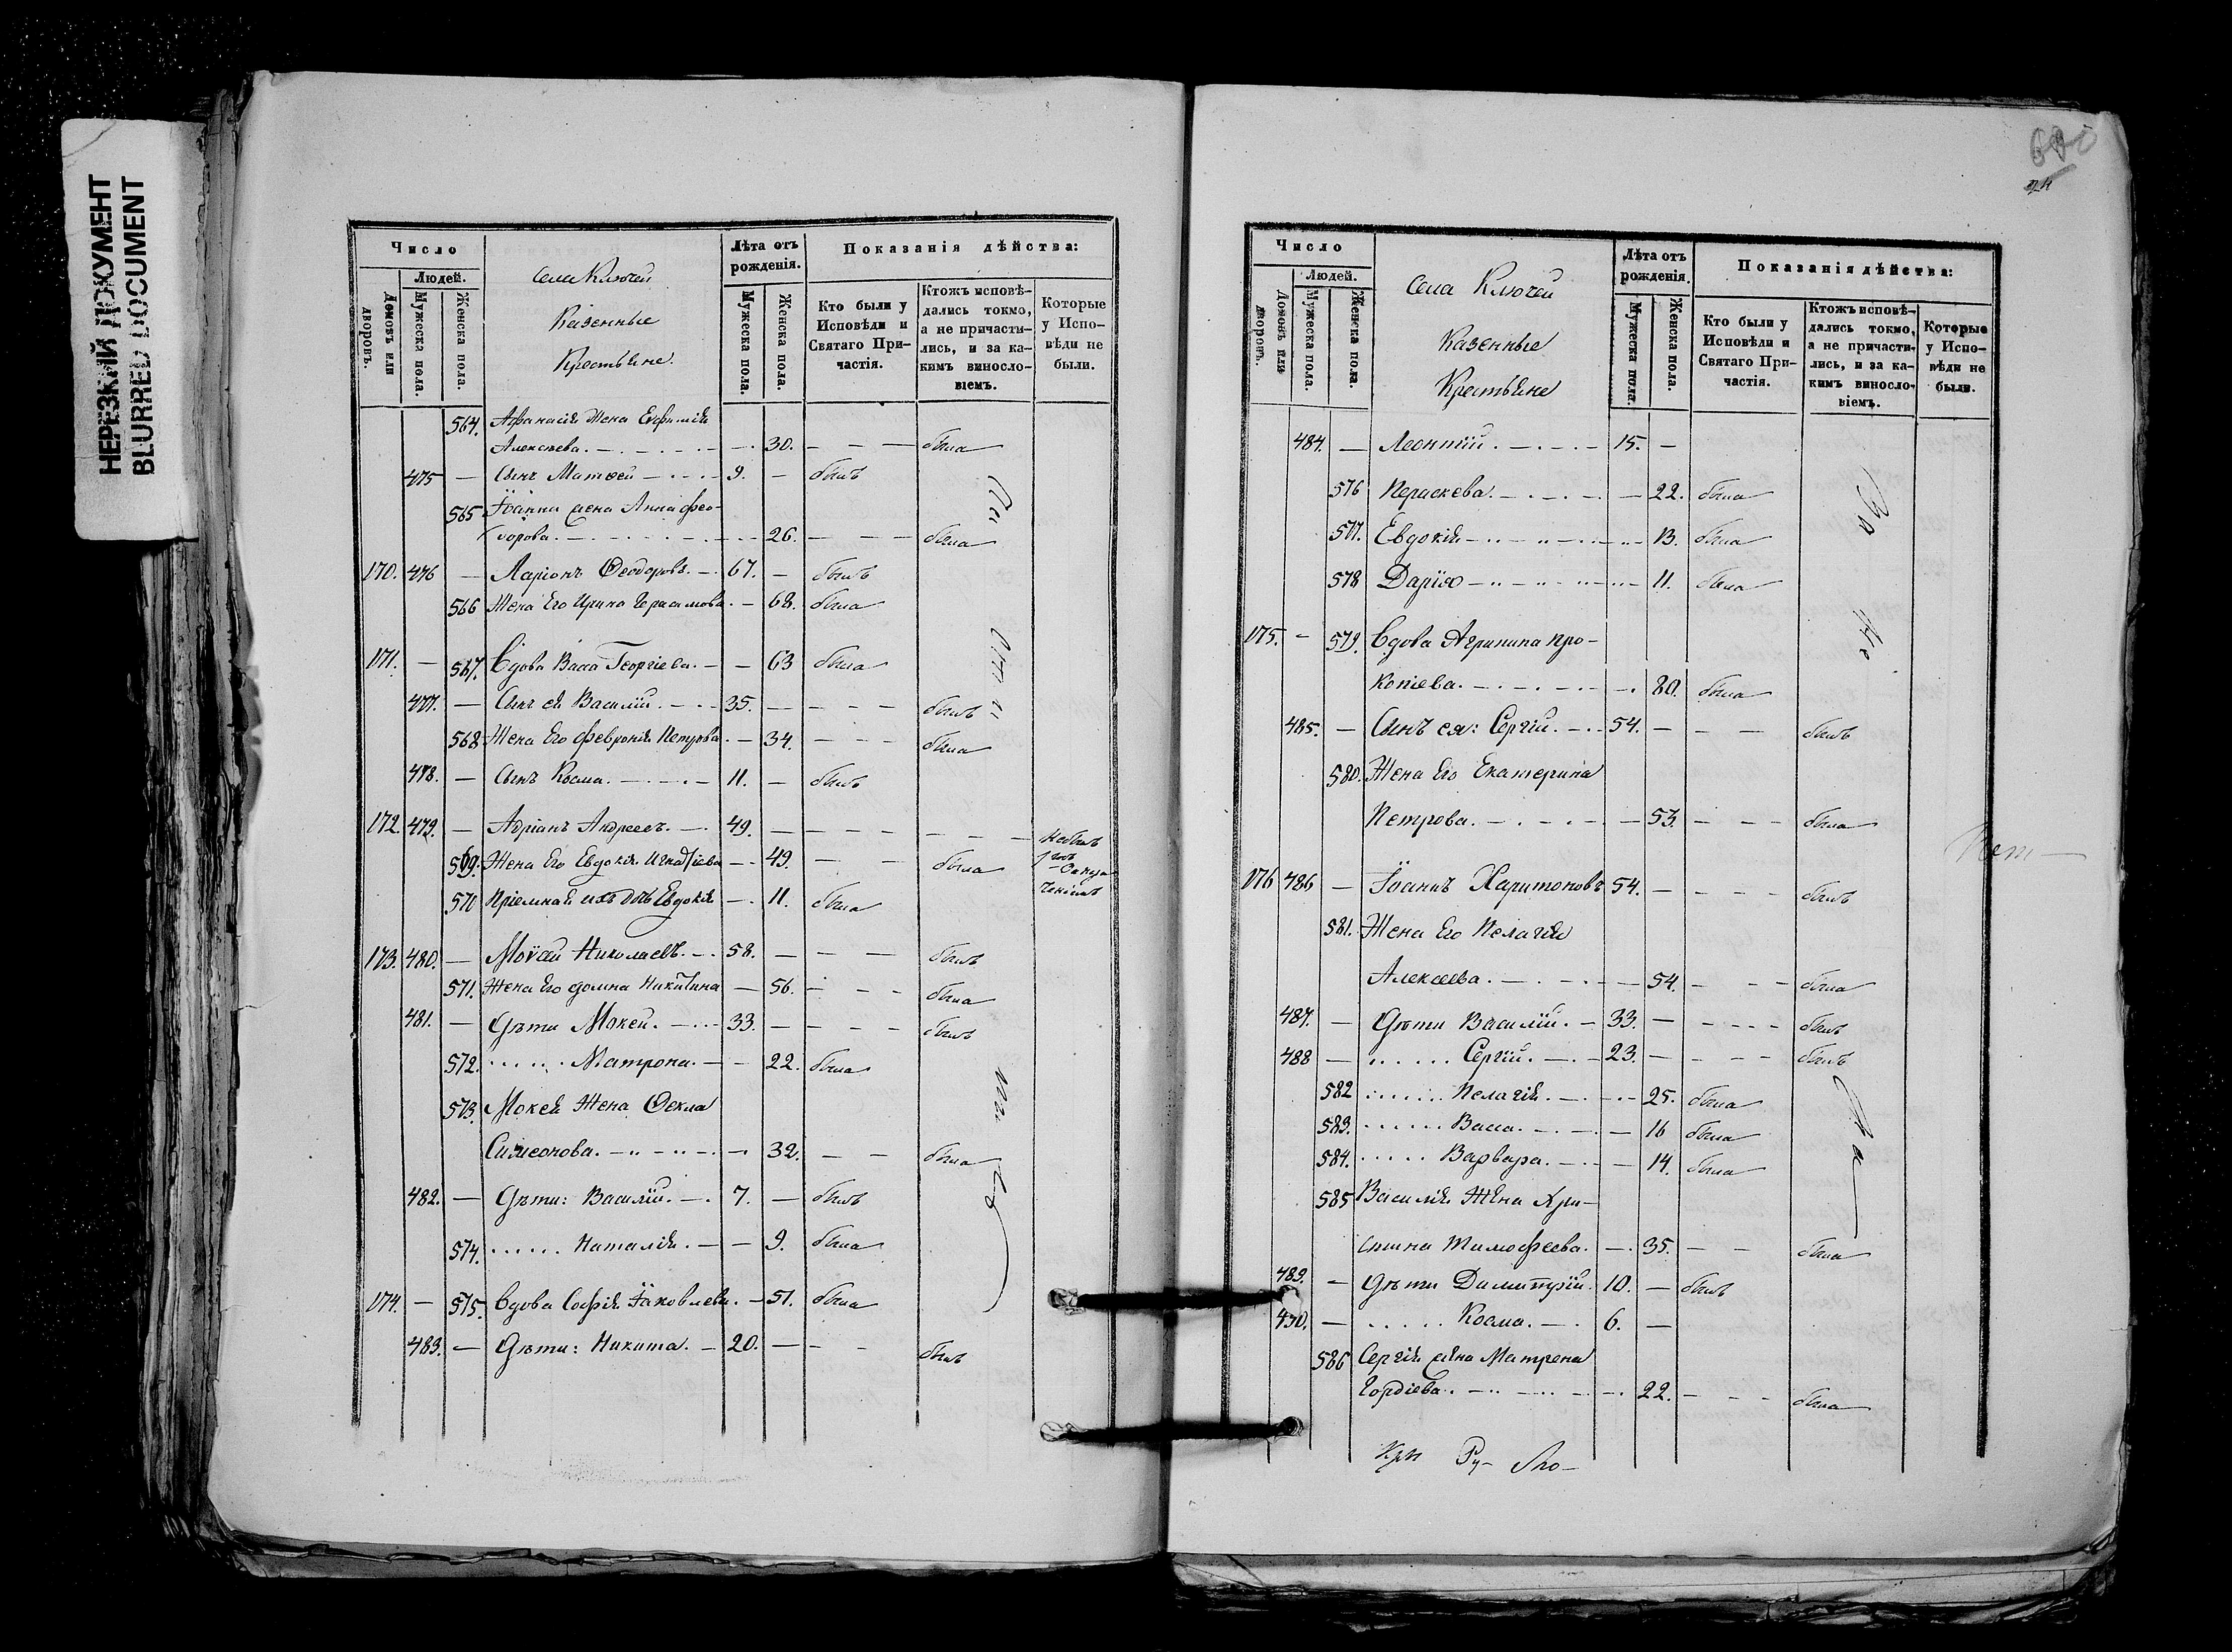 НЕРЕЗКИЙ ДОКУМЕНТ
BLURRED DOCUMENT
Число
Людей.
Домовъ или дворовъ.
Мужеска пола.
Женска пола.
Села Ключей
Казенные
Крестьяне.
Лѣта отъ рожденія.
Мужеска пола.
Женска пола.
Показанія дѣйства:
Кто были у Исповѣди и Святаго Причастія.
Ктожъ исповѣдались токмо, а не причастились, и за какимъ винословіемъ.
Которые у Исповѣди не были.
564. Афанасія Жена Евфимія
Алексѣева. — 30. — — — была
475 — Сынъ Матвей — 9. — былъ
565 Іоанна жена Анна Фео-
дорова. — 26. — — — была
170. 476 — Ларіонъ Ѳеодоровъ. — 67. — былъ
566 Жена Его Ирина Герасимова. — 68. была
171. — 567. Вдова Васса Георгіева. — 63 была
477. — Сынъ ея Василій. — 35. — — — — былъ
568 Жена Его Февронія Петрова. — 34. — — — была
478. — Сынъ Косма. — 11. — былъ
172. 479. — Адріанъ Андреевъ. — 49. — — — — — — — Небылъ
569. Жена Его Евдокія Игнатіева — 49. — — была
570 Пріемная ихъ дочь Евдокія — 11. была
173. 480. — Моѵсей Николаевъ. — 58. — — — былъ
571. Жена Его Домна Никитина — 56. — — — была
481. — Дѣти Мокей. — 33. — — — — былъ
572. ...... Матрона. — 22. была
573. Мокея Жена Ѳекла
Симеонова. — 32. — — была
482. — Дѣти: Василій. — 7. — былъ
574. ...... Наталія. — 9. была
174. — 575. Вдова Софія Іаковлева. — 51. была
483. — Дѣти: Никита. — 20. — — — былъ
Число
Людей.
Домовъ или дворовъ.
Мужеска пола.
Женска пола.
Села Ключей
Казенные
Крестьяне
Лѣта отъ рожденія.
Мужеска пола.
Женска пола.
Показанія дѣйства:
Кто были у Исповѣди и Святаго Причастія.
Ктожъ исповѣдались токмо, а не причастились, и за какимъ винословіемъ.
Которые у Исповѣди не были.
484. — Леонтій. — 15. —
576 Параскева. — 22. была
577. Евдокія — 13. была
578 Дарія — 11. была
175. — 579. Вдова Агрипина Про-
копіева. — 80. была
485. — Сынъ ея: Сергій. — 54. — — — былъ
580. Жена Его Екатерина
Петрова. — 53. — — — была
176 486 — Іоаннъ Харитоновъ 54. — — — — былъ
581. Жена Его Пелагія
Алексеева. — 54. — — — была
487. — Дѣти Василій. — 33. — — — — былъ
488 — ...... Сергій. — 23. — — — былъ
582 ...... Пелагія. — 25. была
583. ...... Васса. — 16 была
584. ..... Варвара. — 14. была
585 Василія Жена Хри-
стина Тимофеева. — 35. — — была
489. — Дѣти Димитрій. 10. — былъ
490. — ..... Косма. — 6. —
586 Сергія жена Матрена
Гордіева. — 22. — — — была